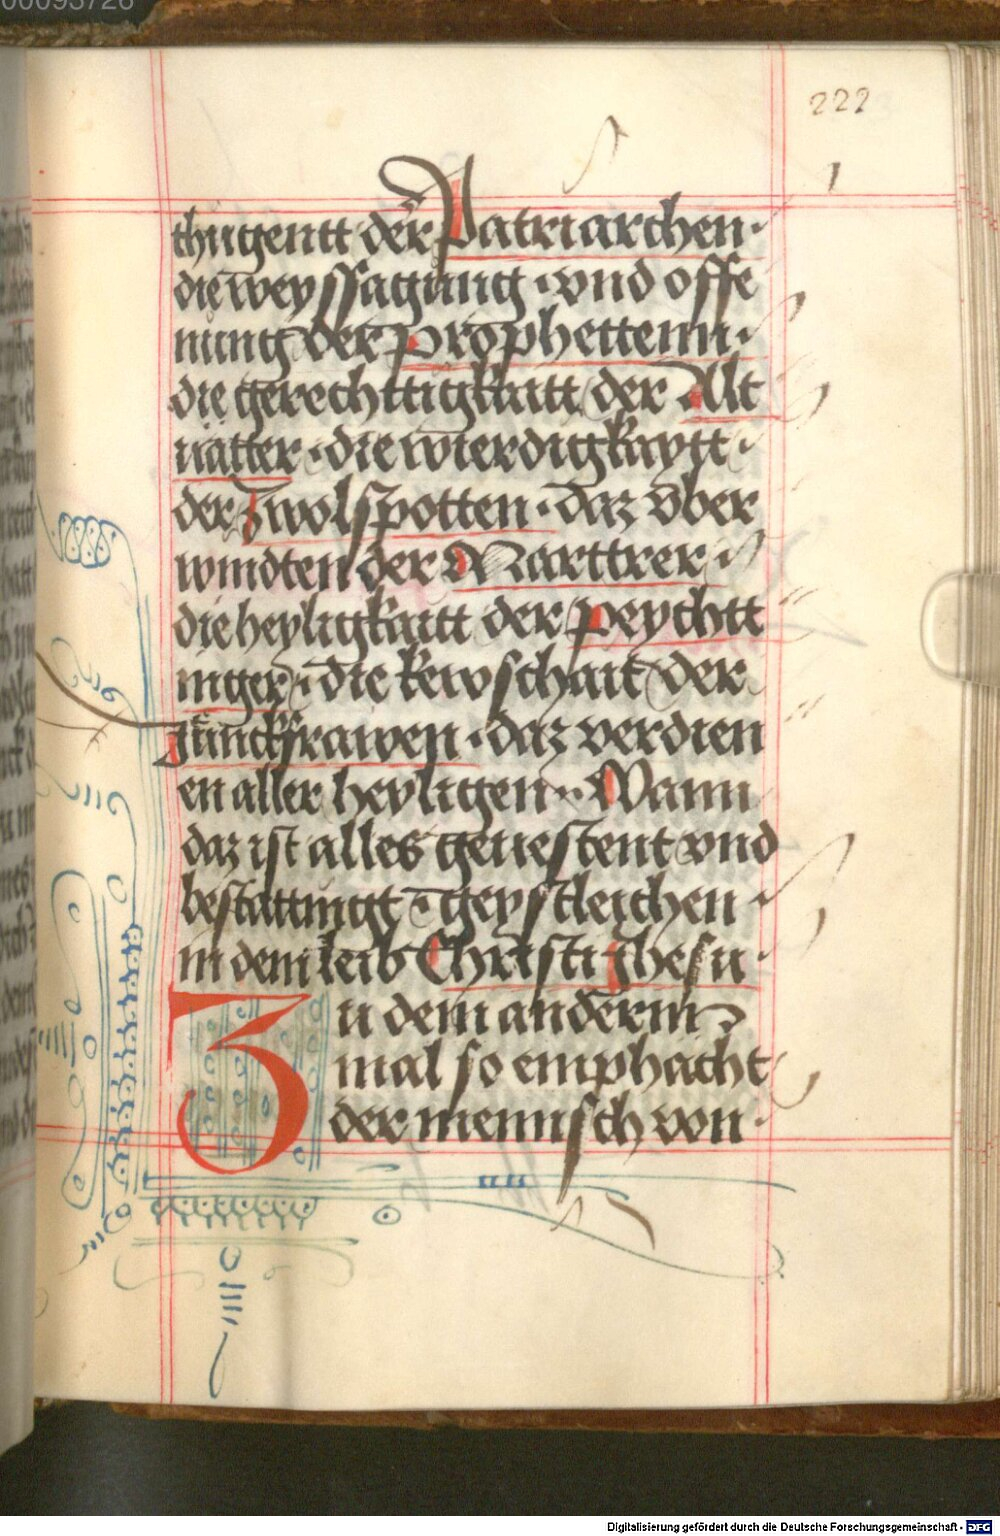 00095726
222
thugentt der Patriarchen·
die weyssagung · vnd offe
nung der Prophettenn·
die gerechttigkaitt der Alt
uätter · die wierdigkaytt·
der Zwolfpotten · daz vber
windten der Marttrer·
die heyligkaitt der peychtt
inger · die kewschait der
Junckfrawen · daz verdien
en aller heyligen · Wann
daz ist alles geuestent vnd
bestättingt geystleichen
in dem leib Christi Jhesu·
Zu dem anderm
mal so emphächt
der mennsch von
Digitalisierung gefördert durch die Deutsche Forschungsgemeinschaft - DFG